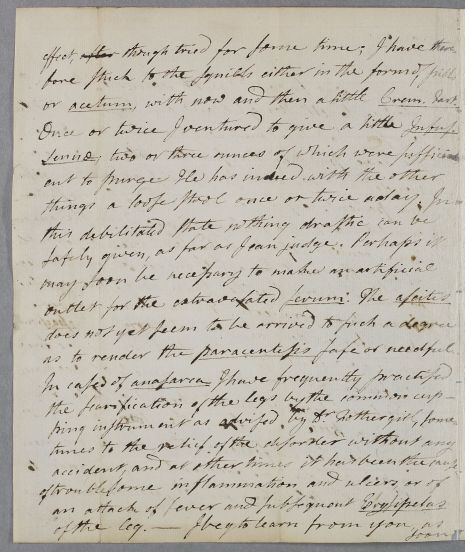 effect, after though tried for some time; I have there
fore stuck to the squills either in the form of pill
or acetum, with now and then a little Crem. Tart.
Once or twice I ventured to give a little Infus.
Sennæ, two or three ounces of which were suffici
ent to purge He has indeed with the other
things a loose stool once or twice a day. In
this debilitated state nothing drastic can be
safely given, as far as I can judge. Perhaps it
may soon be necessary to make an artificial
outlet for the extravasated serum. The ascites
does not yet seem to be arrived to such a degree
as to render the paracentesis safe or needful.
In cases of anasarca I have frequently practised
the scarification of the legs by the common cup-
ping instrument as advised by Dr Fothergill, some
times to the relief of the disorder without any
accident, and at other times it has been the cause
of troublesome inflammation and ulcers, or of
an attack of fever and subsequent Erysipelas
of the leg. — I beg to learn from you, as
soon